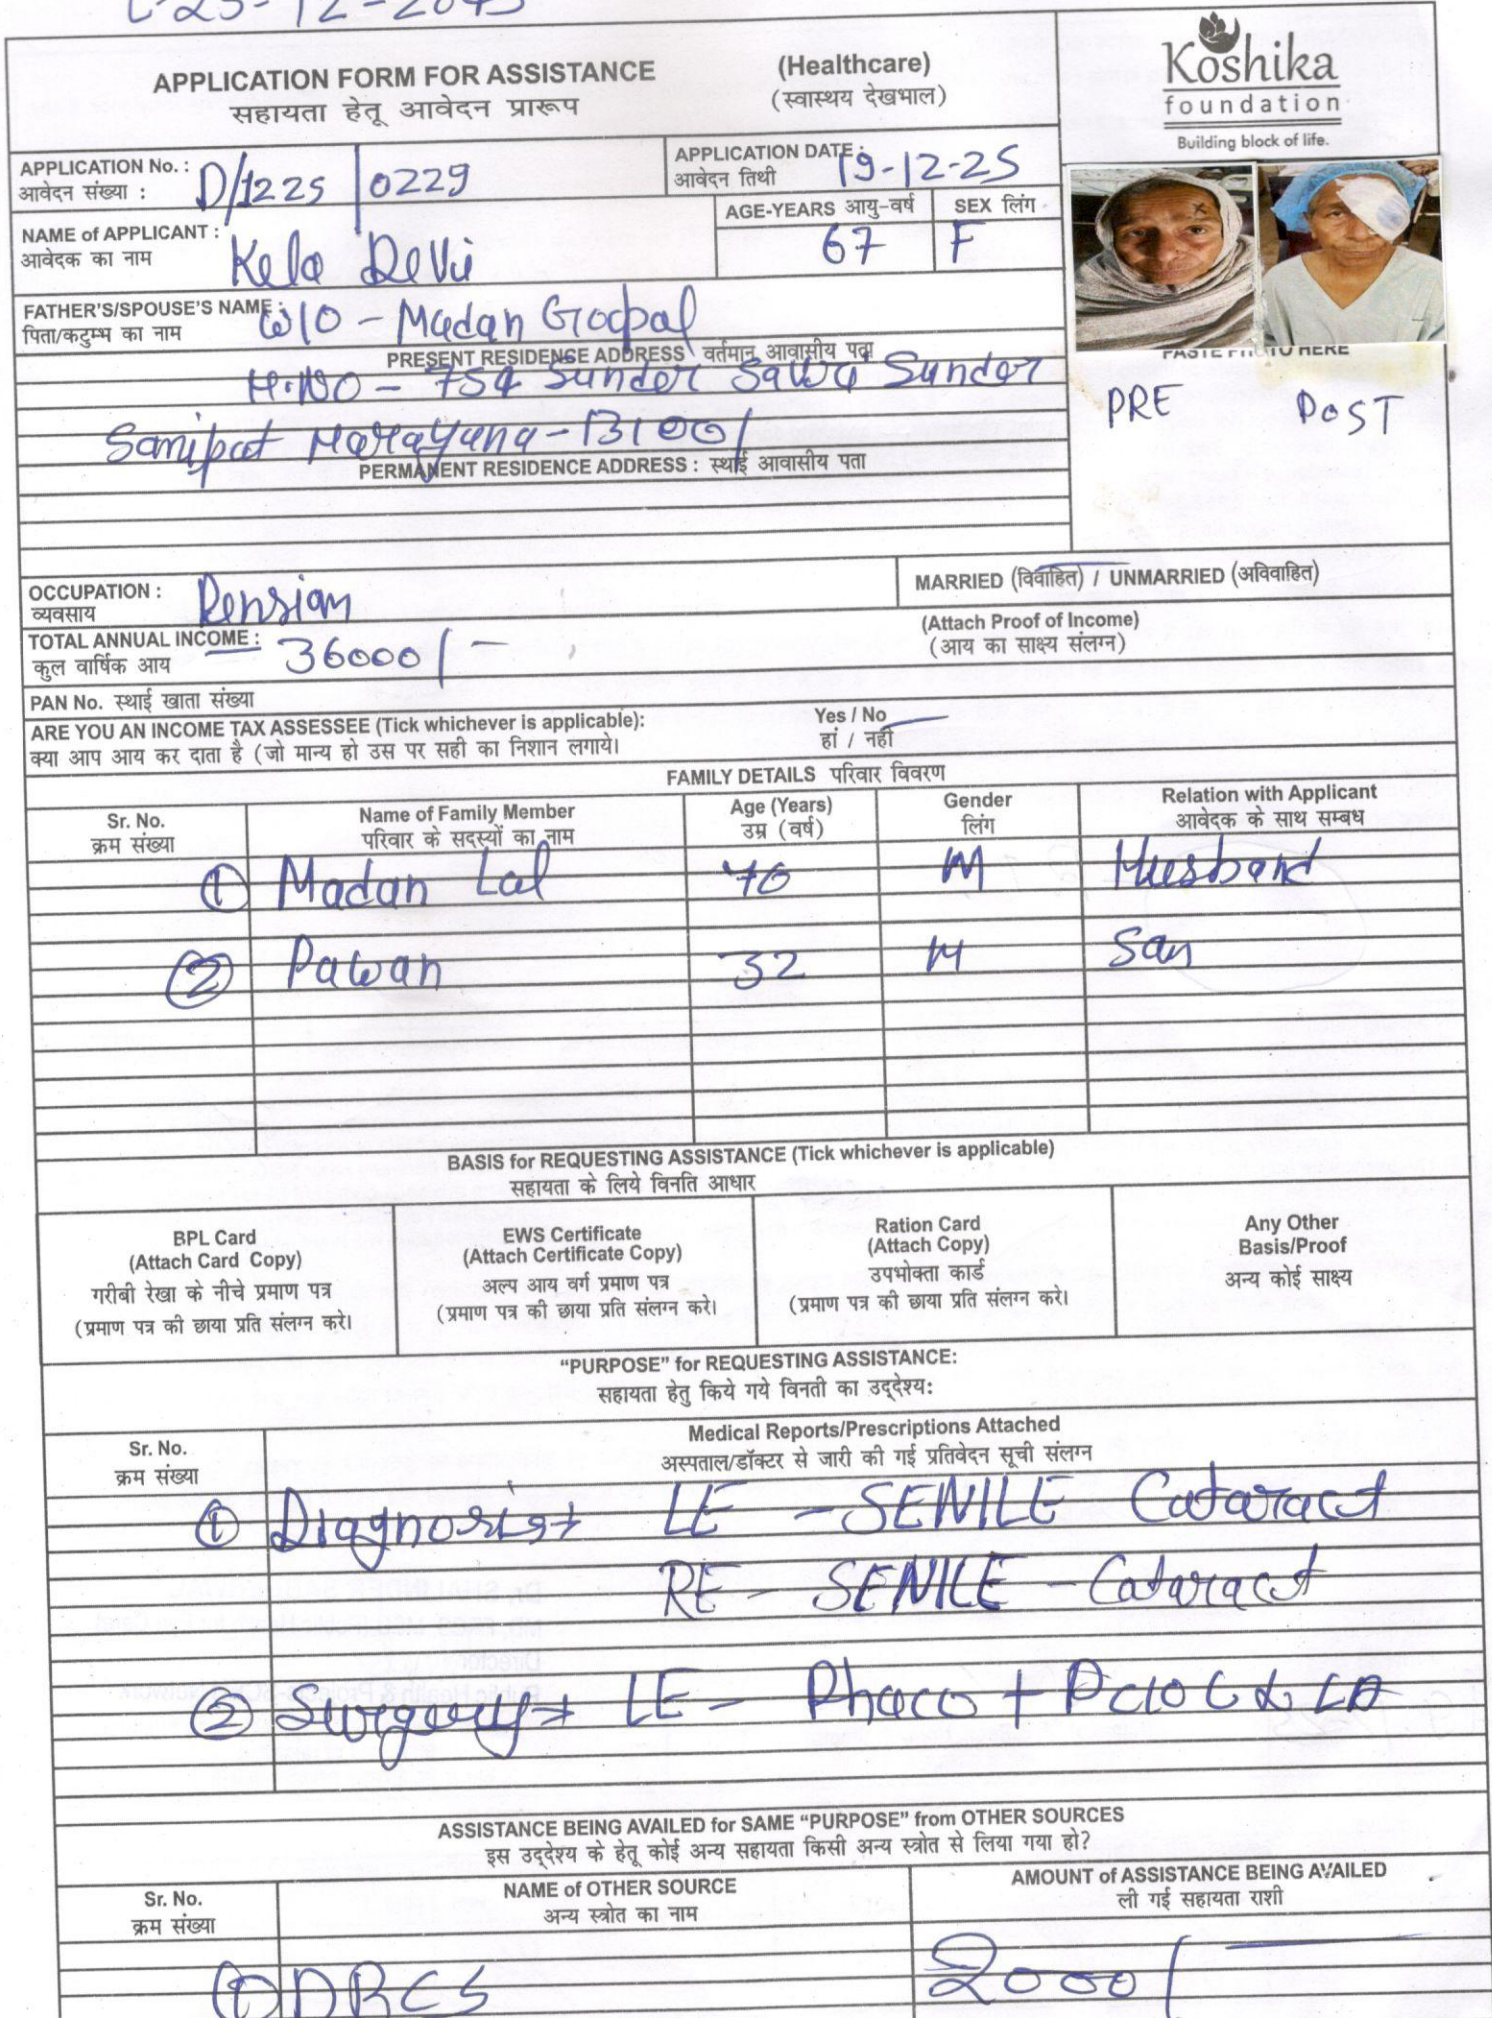 APPLICATION FORM FOR ASSISTANCE (Healthcare)
सहायता हेतू आवेदन प्रारूप (स्वास्थय देखभाल)
Koshika
foundation
Building block of life.
APPLICATION No. : D/1225/0229
आवेदन संख्या :
APPLICATION DATE : 19-12-25
आवेदन तिथी
NAME of APPLICANT : Kela Devi
आवेदक का नाम
AGE-YEARS आयु-वर्ष SEX लिंग
67 F
FATHER'S/SPOUSE'S NAME : W/O - Madan Gopal
पिता/कटुम्भ का नाम
PRESENT RESIDENSE ADDRESS वर्तमान आवासीय पता
H.NO - 754 Sunder Sawa Sunder
Sanipat Harayana - 131001
PASTE PHOTO HERE
PRE POST
PERMANENT RESIDENCE ADDRESS : स्थाई आवासीय पता
OCCUPATION : Pension
व्यवसाय
MARRIED (विवाहित) / UNMARRIED (अविवाहित)
TOTAL ANNUAL INCOME : 36000/-
कुल वार्षिक आय
(Attach Proof of Income)
(आय का साक्ष्य संलग्न)
PAN No. स्थाई खाता संख्या
ARE YOU AN INCOME TAX ASSESSEE (Tick whichever is applicable): Yes / No
क्या आप आय कर दाता है (जो मान्य हो उस पर सही का निशान लगाये। हां / नहीं
FAMILY DETAILS परिवार विवरण
Sr. No. Name of Family Member Age (Years) Gender Relation with Applicant
क्रम संख्या परिवार के सदस्यों का नाम उम्र (वर्ष) लिंग आवेदक के साथ सम्बध
1 Madan Lal 70 M Husband
2 Pawan 32 M San
BASIS for REQUESTING ASSISTANCE (Tick whichever is applicable)
सहायता के लिये विनति आधार
BPL Card
(Attach Card Copy)
गरीबी रेखा के नीचे प्रमाण पत्र
(प्रमाण पत्र की छाया प्रति संलग्न करे।
EWS Certificate
(Attach Certificate Copy)
अल्प आय वर्ग प्रमाण पत्र
(प्रमाण पत्र की छाया प्रति संलग्न करे।
Ration Card
(Attach Copy)
उपभोक्ता कार्ड
(प्रमाण पत्र की छाया प्रति संलग्न करे।
Any Other
Basis/Proof
अन्य कोई साक्ष्य
"PURPOSE" for REQUESTING ASSISTANCE:
सहायता हेतु किये गये विनती का उद्देश्य:
Sr. No. Medical Reports/Prescriptions Attached
क्रम संख्या अस्पताल/डॉक्टर से जारी की गई प्रतिवेदन सूची संलग्न
1 Diagnosis LE - SENILE Cataract
RE - SENILE - Cataract
2 Surgery LE - Phaco + PCIOL
ASSISTANCE BEING AVAILED for SAME "PURPOSE" from OTHER SOURCES
इस उद्देश्य के हेतू कोई अन्य सहायता किसी अन्य स्त्रोत से लिया गया हो?
Sr. No. NAME of OTHER SOURCE AMOUNT of ASSISTANCE BEING AVAILED
क्रम संख्या अन्य स्त्रोत का नाम ली गई सहायता राशी
1 DBCS 2000/-